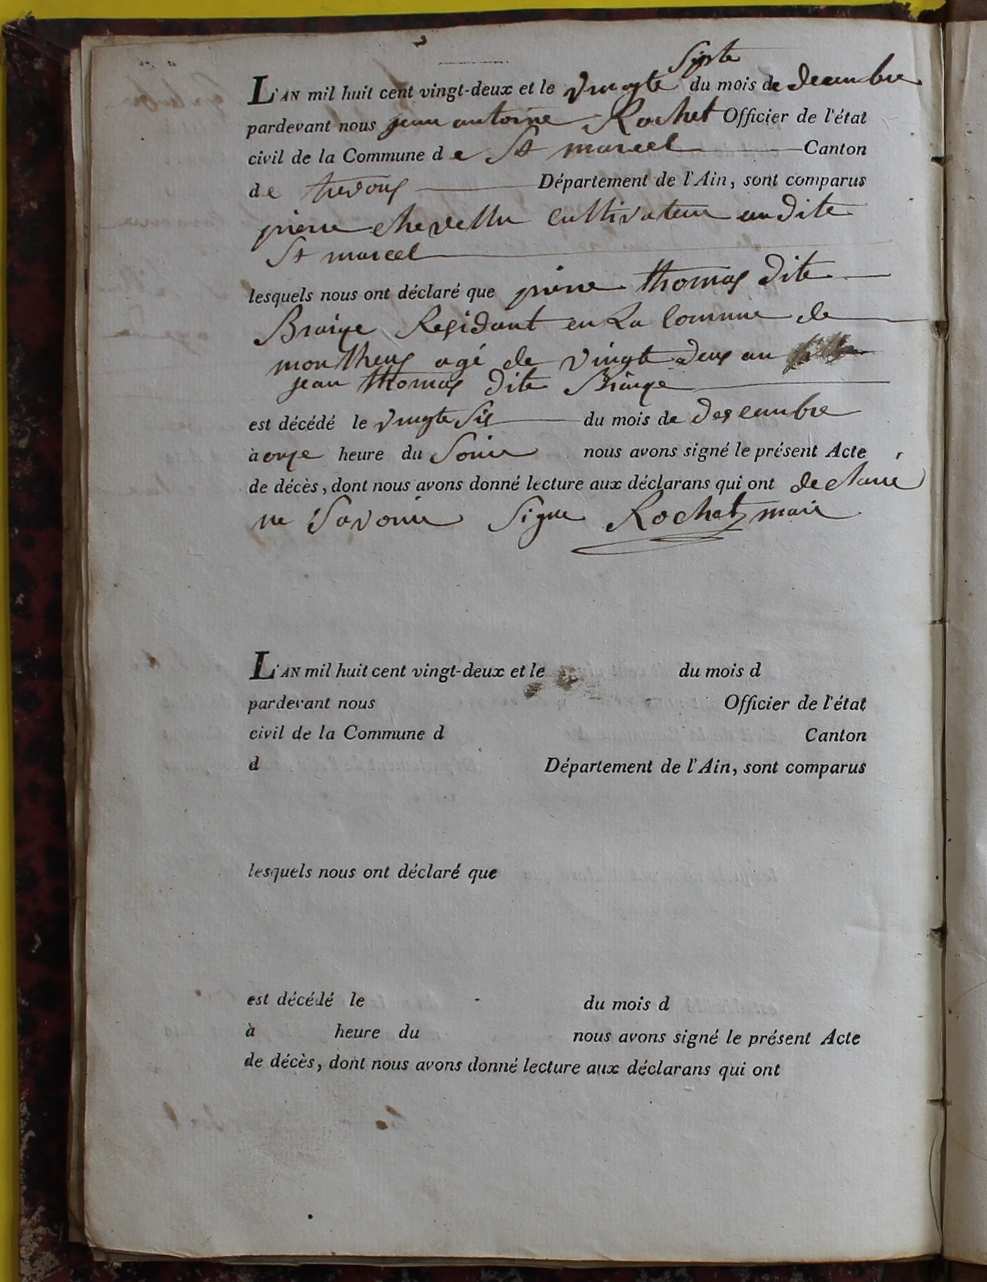 Sipte
L'AN mil huit cent vingt-deux et le vingte du mois de decembre
pardevant nous jean antoine Rochet Officier de l'état
civil de la Commune de St marcel Canton
de trevoux Département de l'Ain, sont comparus
pierre chevellu cultivateur audite
St marcel
lesquels nous ont déclaré que pierre thomas dite
Braije Residant en La Commune de
montheus agé de vingte deus an
jean thomas dite Braije
est décédé le vingte Sis du mois de desembre
à onze heure du Soire nous avons signé le présent Acte
de décès, dont nous avons donné lecture aux déclarans qui ont declaré
ne Savoire Signe Rochet maire
L'AN mil huit cent vingt-deux et le du mois d
pardevant nous Officier de l'état
civil de la Commune d Canton
d Département de l'Ain, sont comparus
lesquels nous ont déclaré que
est décédé le du mois d
à heure du nous avons signé le présent Acte
de décès, dont nous avons donné lecture aux déclarans qui ont